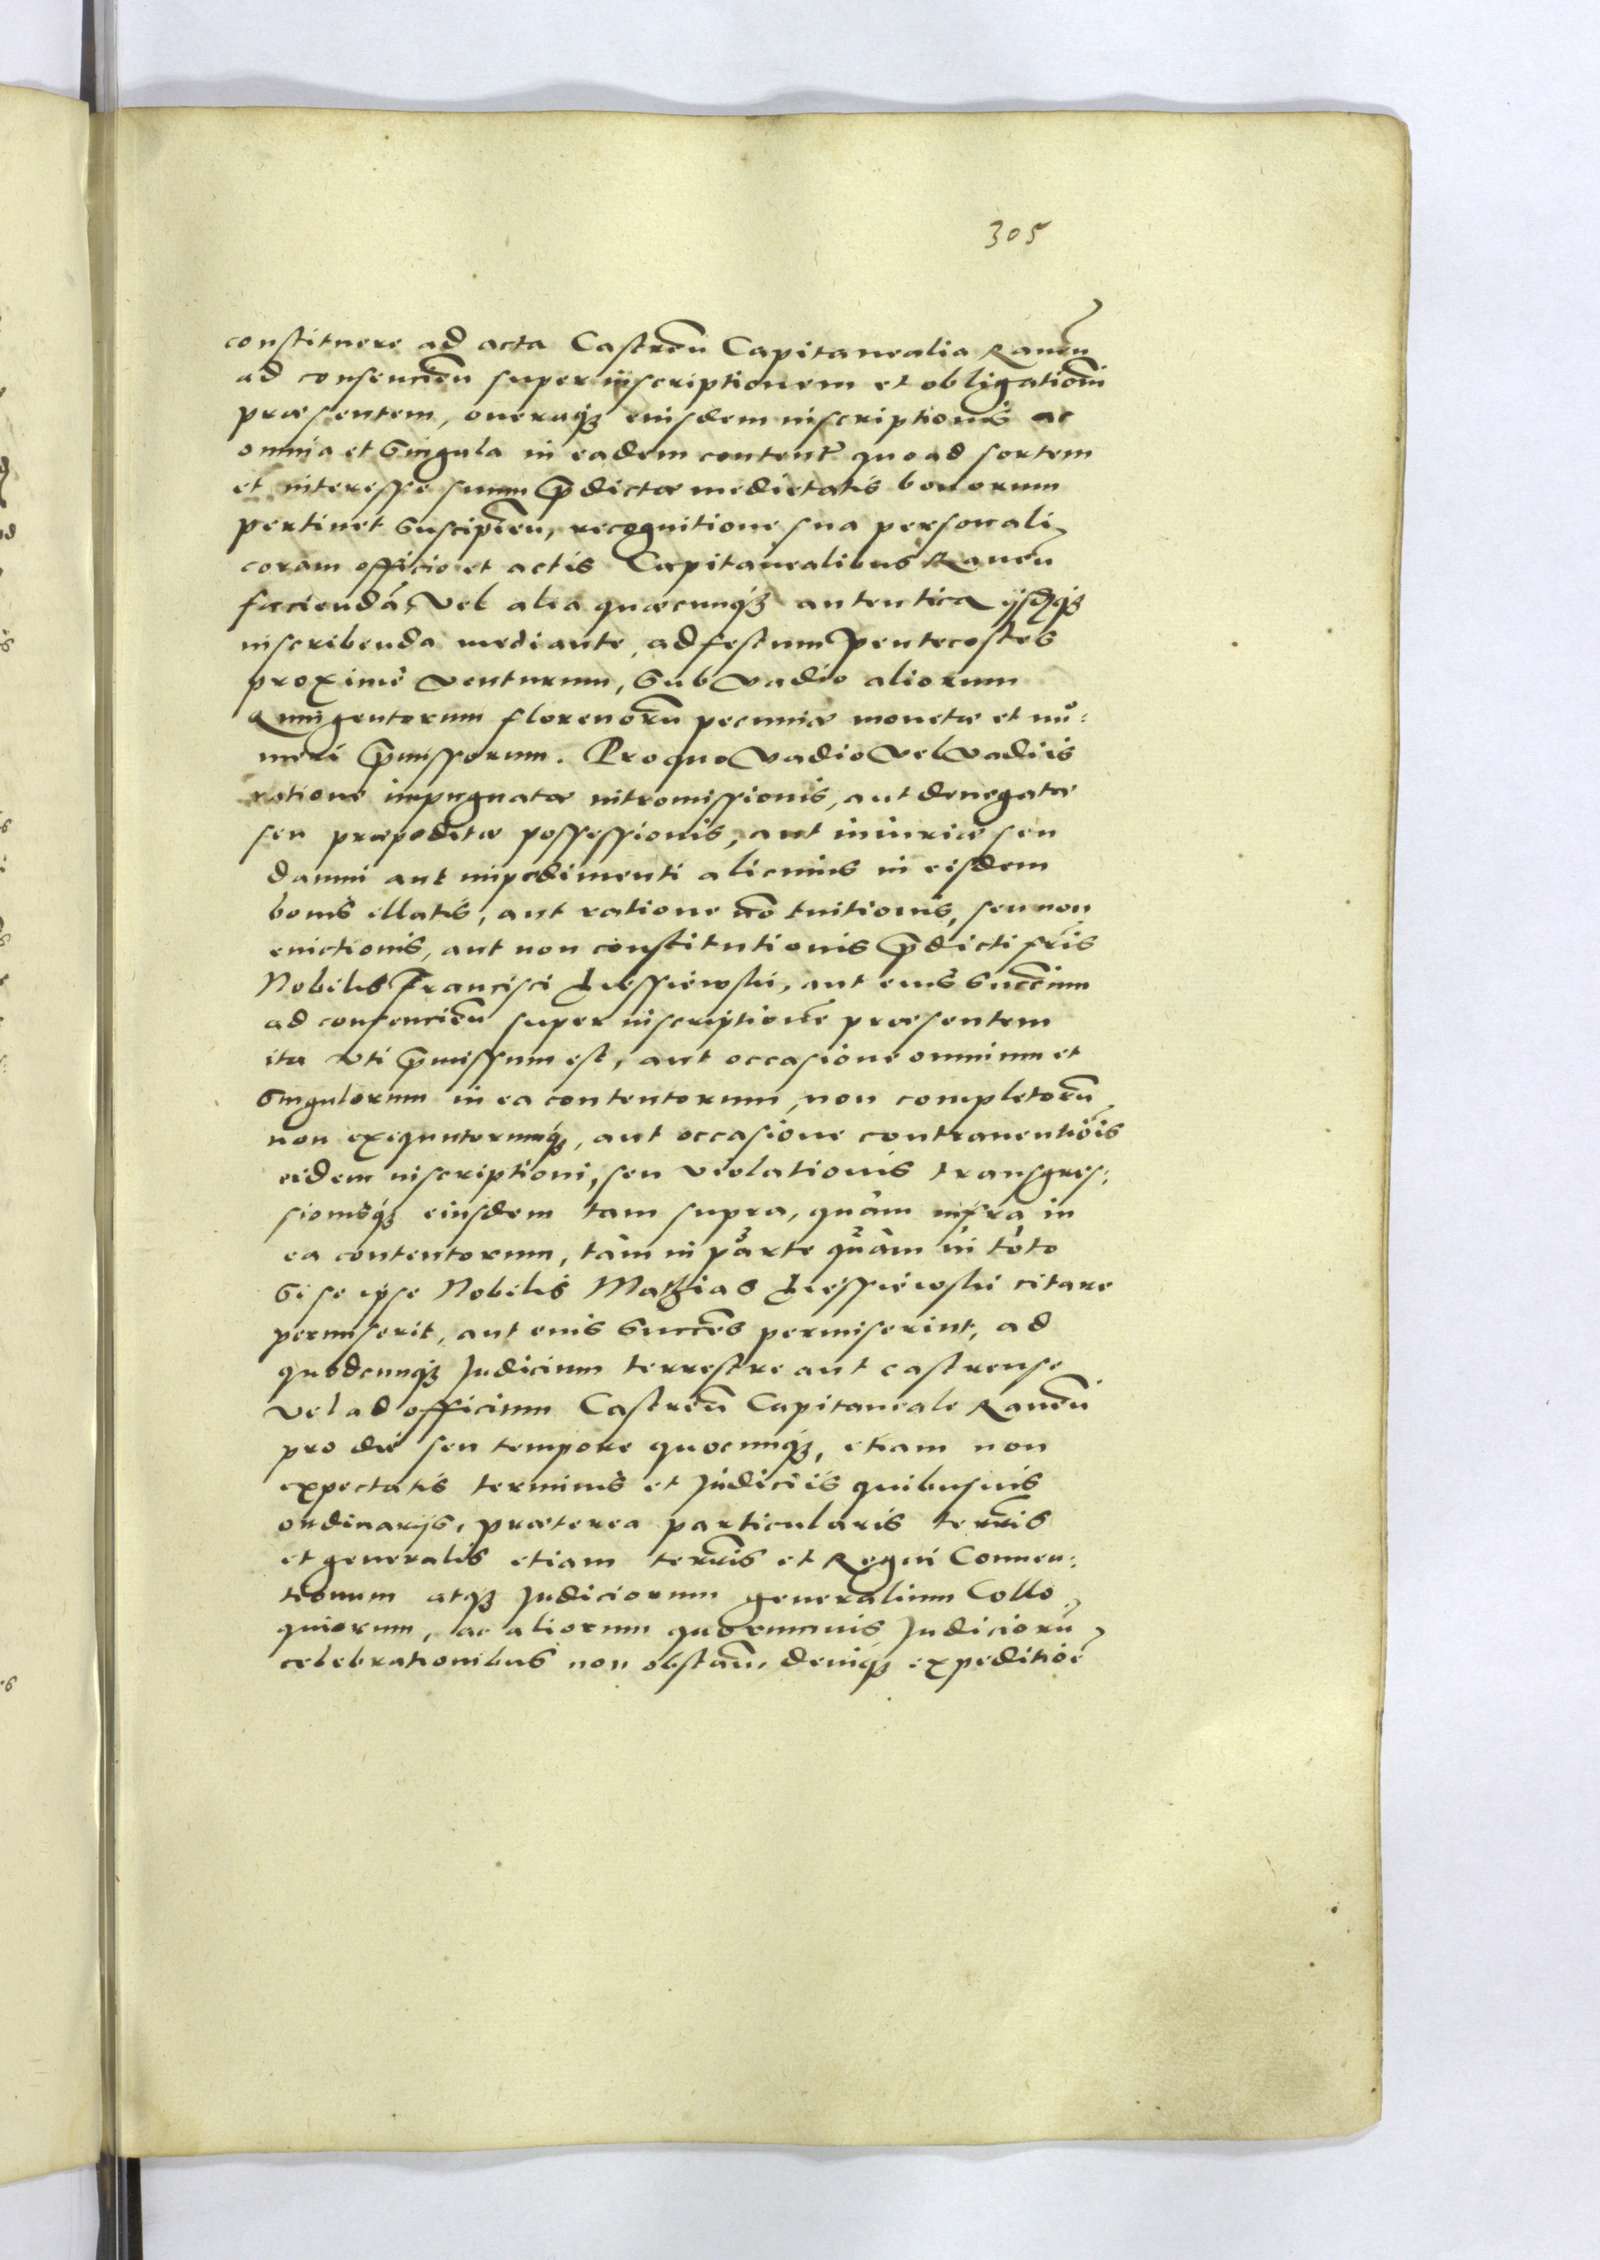 305
constituere ad acta Castreñ Capitanealia Raveñ
ad consencieñ super inscriptionem et obligationẽ
præsentem, oneraqȝ eiusdem inscriptionis ac
omnia et singula in eadem content quoad sortem
et interesse suum p̄dictæ medietatis bonorum
pertinet suscipieñ, recognitione sua personali
coram officio et actis Capitanealibus Raveñ
facienda, vel alia quæcunqȝ autentica
inscribenda mediante, ad festum Pentecostes
proximè venturum, sub vadio aliorum
Quingentorum florenorũ pecuniæ monetæ et nu:
meri p̄missorum. Pro quo vadio vel vadiis
ratione impugnatæ intromissionis, aut denegatæ
seu præpeditæ possessionis, aut iniuriæ seu
damni aut impedimenti alicuius in eisdem
bonis illatis, aut ratione nõ tuitionis, seu non
evictionis, aut non constitutionis p̄dicti fr̃is
Nobilis Francisci Liessiewski, aut eius succ̃um
ad consencieñ super inscriptionẽ præsentem
ita uti p̄missum est, aut occasione omnium et
singulorum in ea contentorum, non completorũ
non exequutorumqȝ, aut occasione contraventiõis
eidem inscriptioni, seu violationis transgres:
sionisqȝ eiusdem tam supra, quàm infra in
ea contentorum, tàm in parte quàm in toto
si se ipse Nobilis Mathias Liessiewski citare
permiserit, aut eius succ̃es permiserint, ad
quodcunqȝ Judicium terrestre aut castrense
vel ad officium Castreñ Capitaneale Raveñ
pro die seu tempore quocunqȝ, etiam non
expectatis terminis et Judiciis quibusvis
ordinarijs, præterea particularis terr̃is
et generalis etiam terr̃is et Regni Conven:
tionum atqȝ Judiciorum generalium Collo
quiorum, ac aliorum quorumvis Judiciorũ
celebrationibus non obstañ, deniqȝ expeditiõe